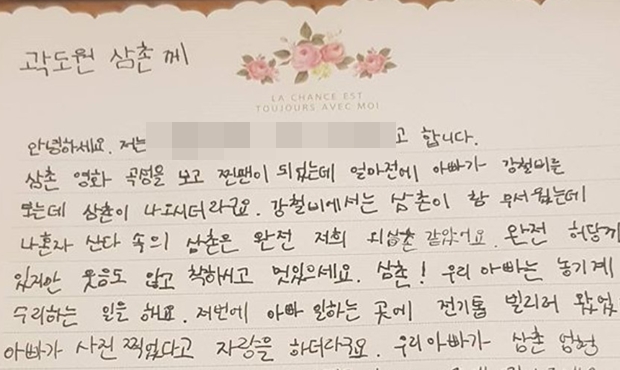 곽도원 삼촌께
LA CHANCE EST
TOUJOURS AVEC MOI
안녕하세요. 저는 고 합니다.
삼촌 영화 곡성을 보고 찐팬이 되었는데 얼마전에 아빠가 강철비를
보는데 삼촌이 나오시더라구요. 강철비에서는 삼촌이 참 무서웠는데
나혼자 산다 속의 삼촌은 완전 저희 외삼촌 같았어요. 완전 허당끼
있지만 웃음도 많고 착하시고 멋있으세요. 삼촌! 우리 아빠는 농기계
수리하는 일을 해요. 저번에 아빠 일하는 곳에 전기톱 빌리러 왔었
아빠가 사진 찍었다고 자랑을 하더라구요. 우리아빠가 삼촌